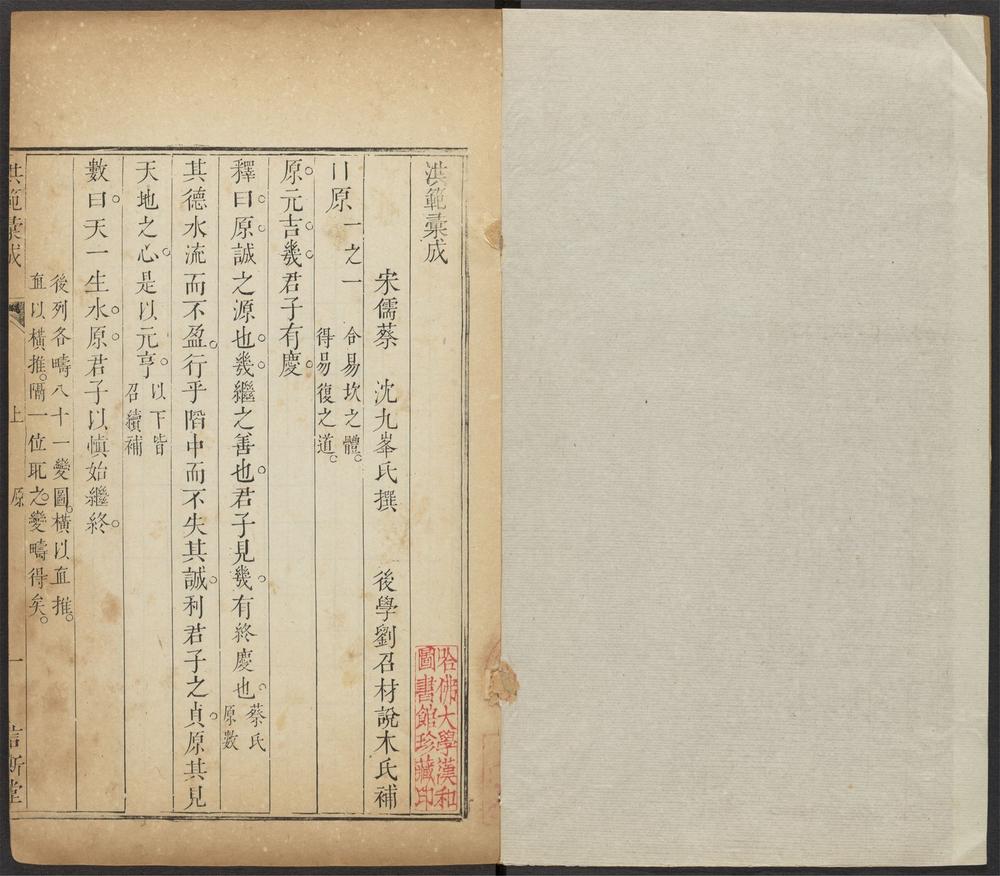 洪範彙成
宋儒蔡 沈九峯氏撰 後學劉召材說木氏補
〢原 一之一 合易坎之體。
得易復之道。
原。元吉。幾。君子有慶。
釋曰。原。誠之源也。幾。繼之善也。君子見幾。有終慶也。蔡氏
原數
其德水流而不盈。行乎陷中而不失其誠。利君子之貞。原其見
天地之心。是以元亨。以下皆
召續補
數曰。天一生水。原。君子以慎始繼終。
後列各疇八十一變圖。橫以直推。
直以橫推。隔一位取之。變疇得矣。
洪範彙成 上 原 一
哈佛大學漢和
圖書館珍藏印